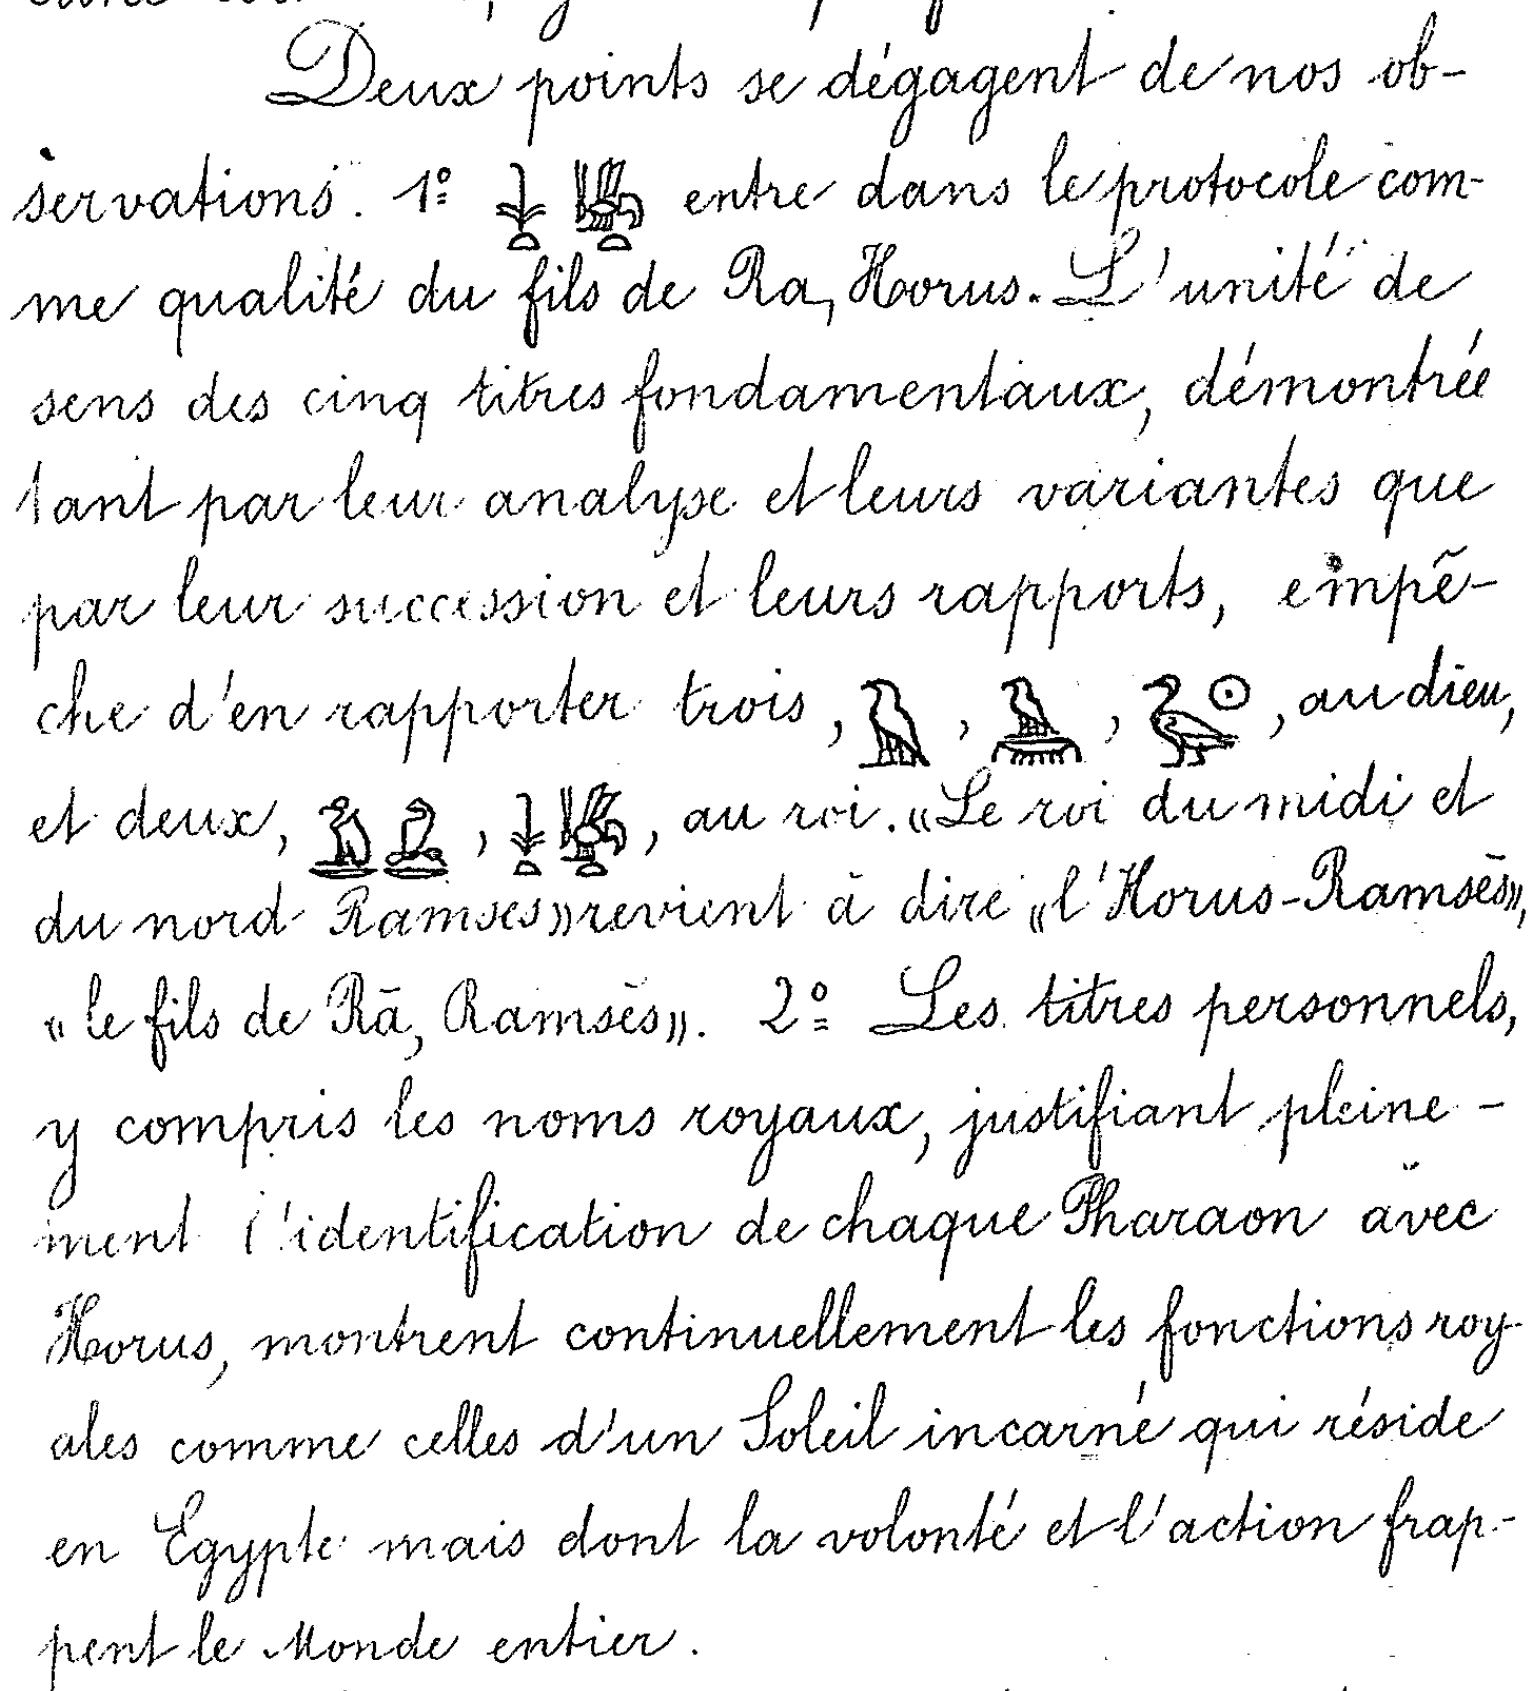 Deux points se dégagent de nos ob-
servations. 1º 𓇓𓏏 𓆤𓏏 entre dans le protocole com-
me qualité du fils de Ra, Horus. L'unité de
sens des cinq titres fondamentaux, démontrée
tant par leur analyse et leurs variantes que
par leur succession et leurs rapports, empê-
che d'en rapporter trois, 𓅃, 𓅉, 𓅭𓇳, au dieu,
et deux, 𓅒, 𓇓𓏏 𓆤𓏏, au roi. «Le roi du midi et
du nord Ramses» revient à dire «l'Horus-Ramsès»,
«le fils de Rā, Ramsès». 2º Les titres personnels,
y compris les noms royaux, justifiant pleine-
ment l'identification de chaque Pharaon avec
Horus, montrent continuellement les fonctions roy-
ales comme celles d'un Soleil incarné qui réside
en Egypte mais dont la volonté et l'action frap-
pent le Monde entier.